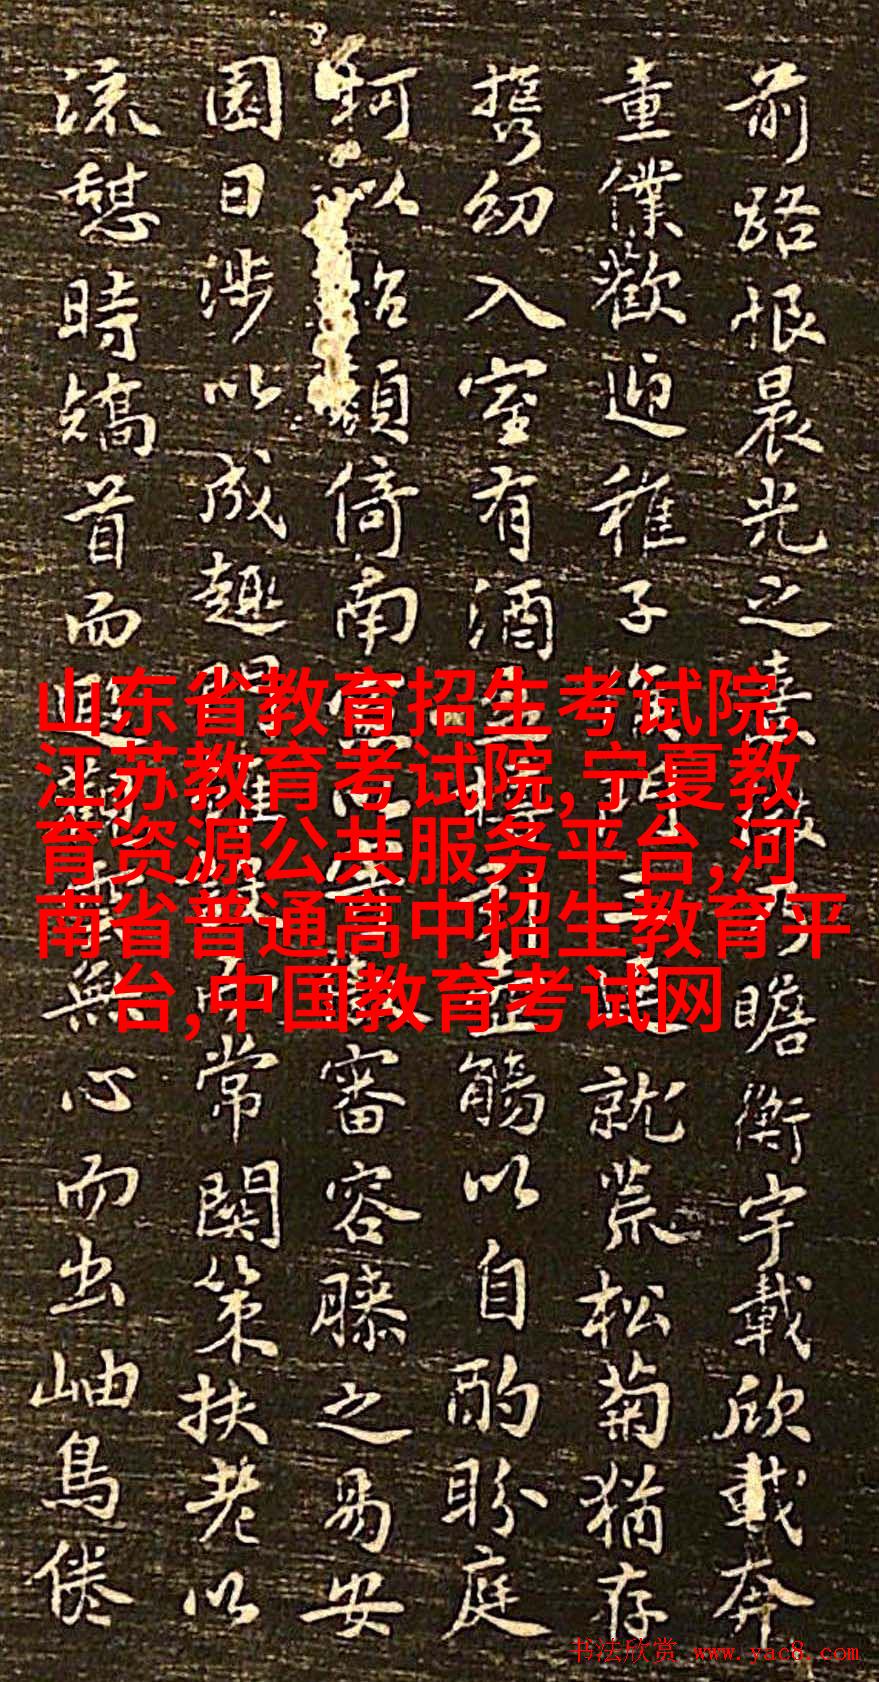 前路恨晨光之熹微乃瞻衡宇載欣載奔
童僕歡迎稚子候門三逕就荒松菊猶存
携幼入室有酒盈樽引壺觴以自酌眄庭
柯以怡顔倚南窓以寄傲審容膝之易安
園日涉以成趣門雖設而常關策扶老以
流憩時矯首而遐觀雲無心而出岫鳥倦
山东省教育招生考试院,
江苏教育考试院,宁夏教
育资源公共服务平台,河
南省普通高中招生教育平
台,中国教育考试网
书法欣赏 www.yac8.com